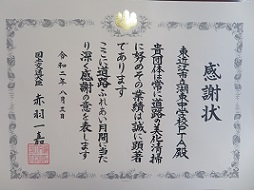 感謝状
東近江市立湖東中学校PTA殿
貴団体は常に道路の美化清掃
に努めその業績は誠に顕著
であります
ここに道路ふれあい月間に当た
り深く感謝の意を表します
令和二年八月三日
国土交通大臣 赤羽一嘉